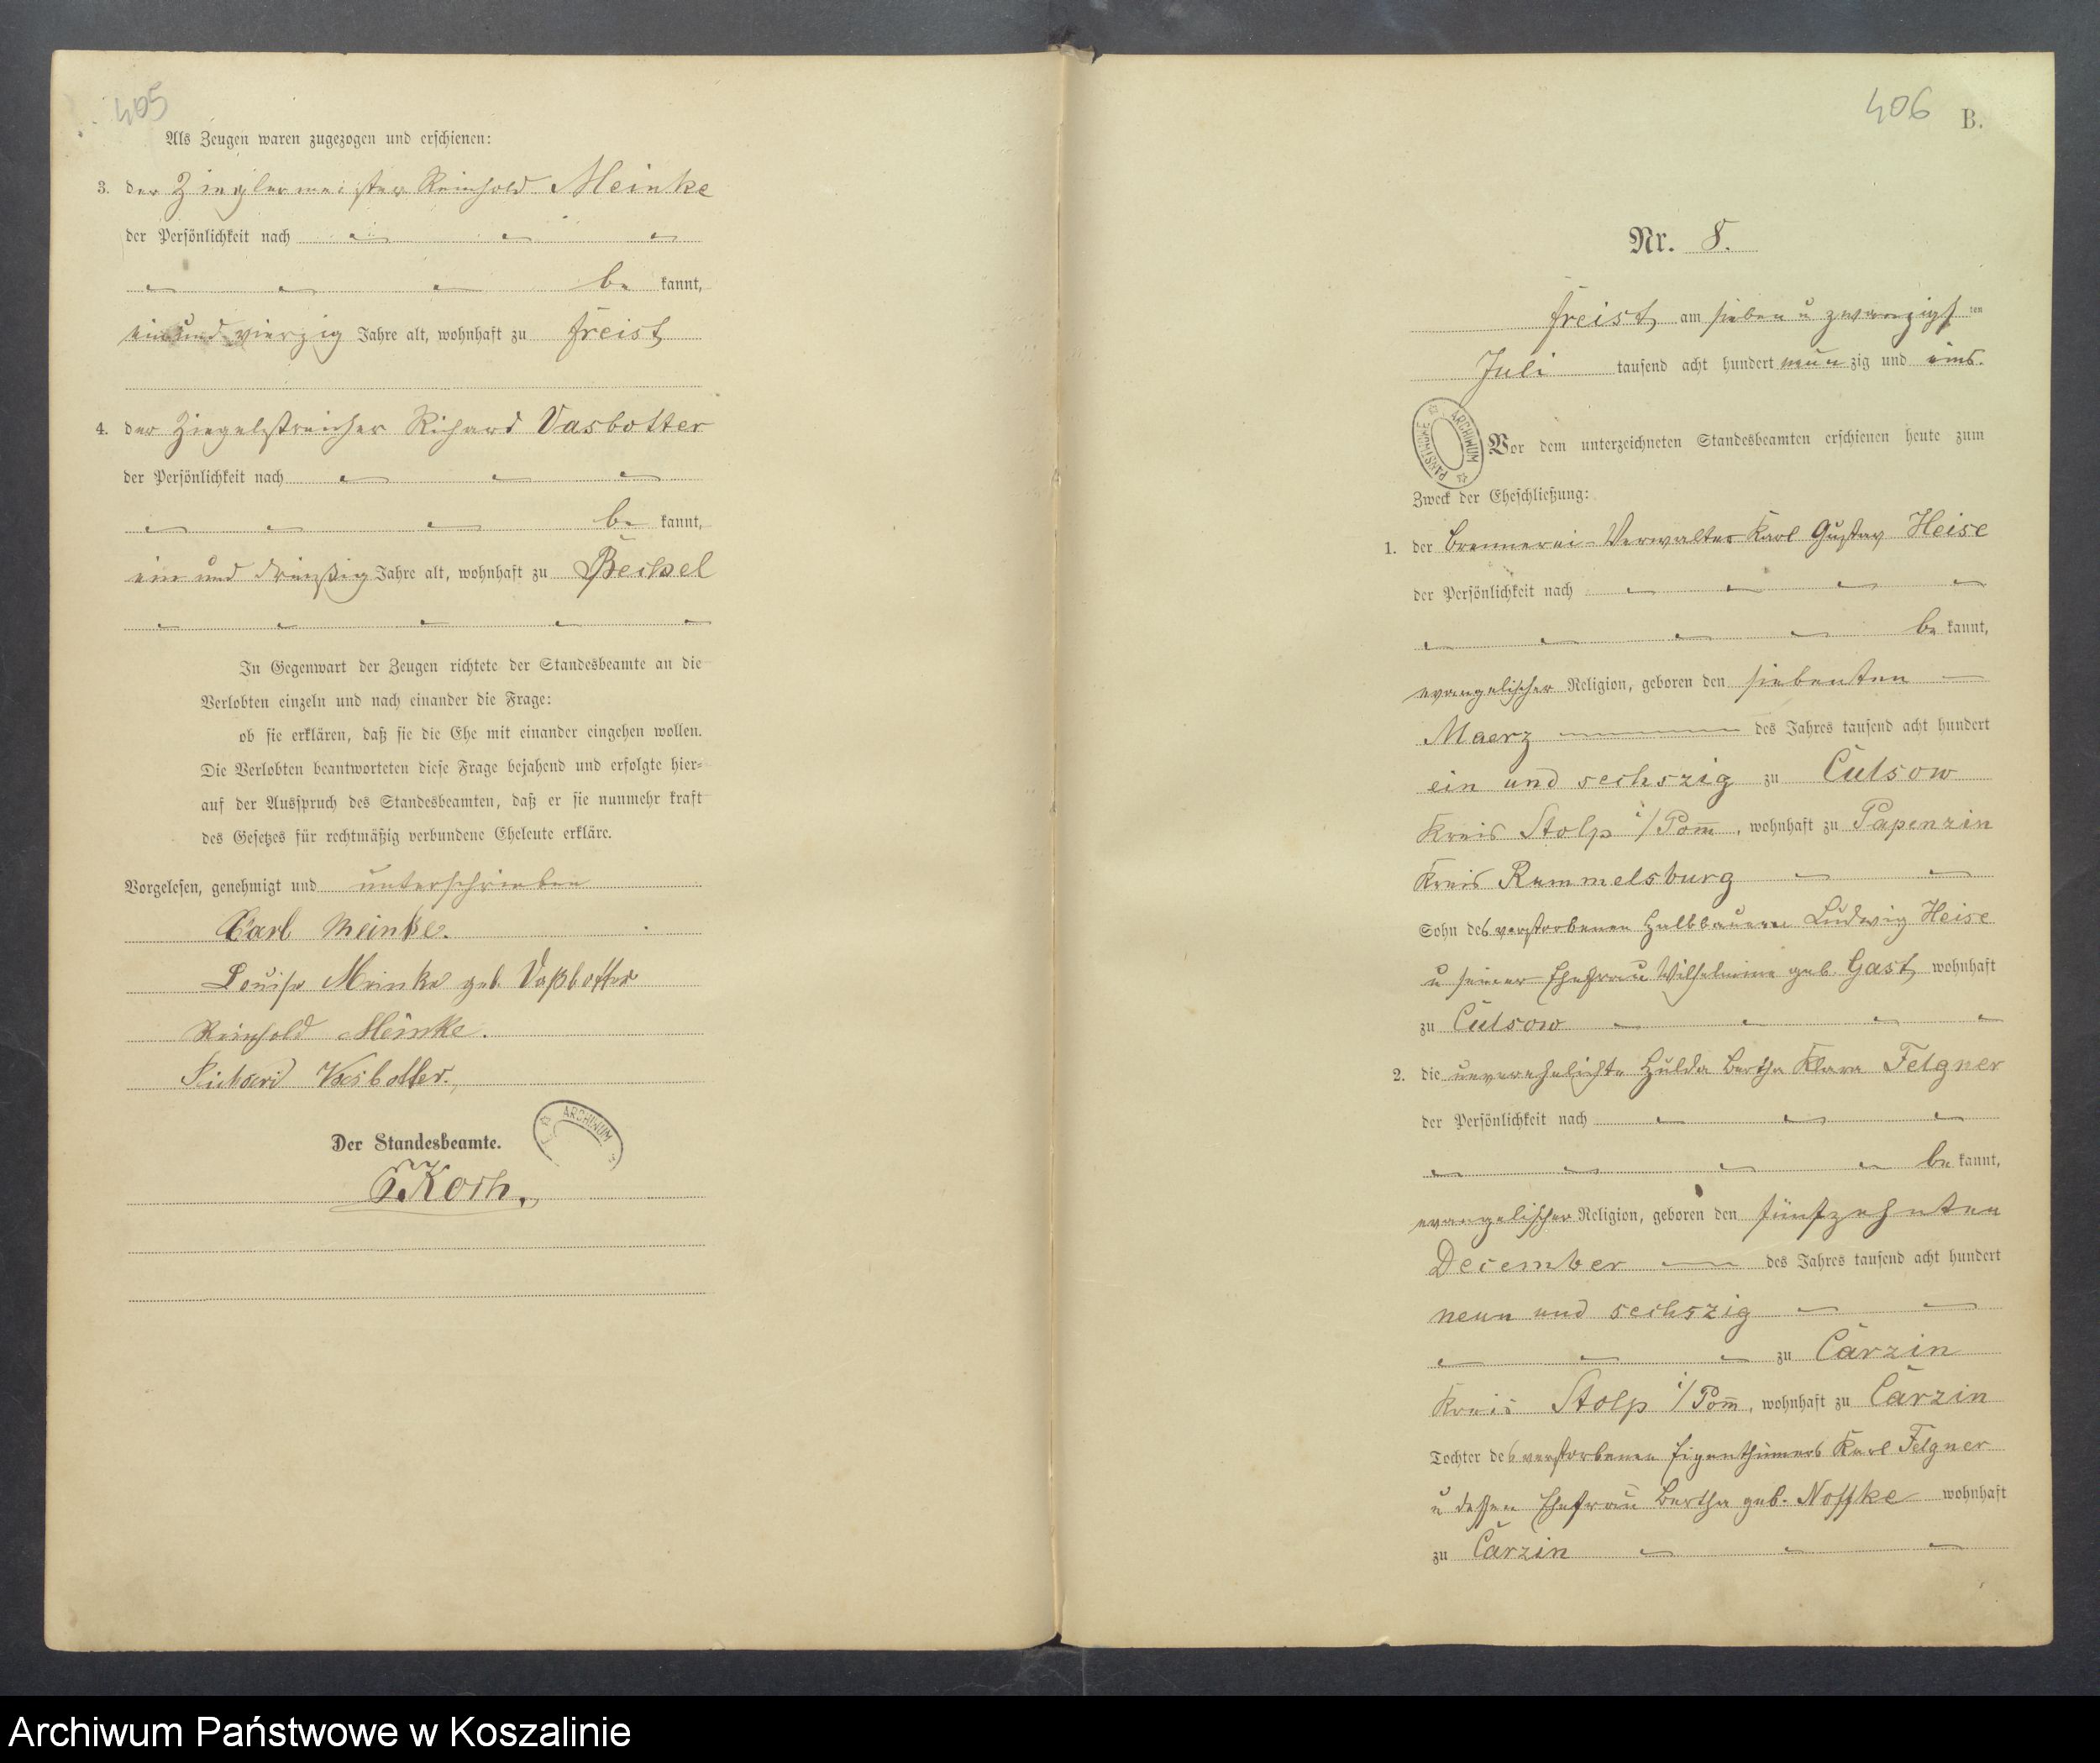 405
Als Zeugen waren zugezogen und erschienen:
3. der Zieglermeister Reinhold Meinke
der Persönlichkeit nach
be kannt,
ein und vierzig Jahre alt, wohnhaft zu Freist
4. der Ziegelstreicher Richard Vasbotter
der Persönlichkeit nach
be kannt,
ein und dreißig Jahre alt, wohnhaft zu
In Gegenwart der Zeugen richtete der Standesbeamte an die
Verlobten einzeln und nach einander die Frage:
ob sie erklären, daß sie die Ehe mit einander eingehen wollen.
Die Verlobten beantworteten diese Frage bejahend und erfolgte hier-
auf der Ausspruch des Standesbeamten, daß er sie nunmehr kraft
des Gesetzes für rechtmäßig verbundene Eheleute erkläre.
Vorgelesen, genehmigt und unterschrieben
Carl Meinke.
Louise Meinke geb. Vaßbotter
Reinhold Meinke.
Richard Vasbotter.
Der Standesbeamte.
Koch.
ARCHIWUM
406
B.
Nr. 8.
Freist, am sieben u zwanzigsten
Juli tausend acht hundert neunzig und eins.
ARCHIWUM PAŃSTWOWE
Vor dem unterzeichneten Standesbeamten erschienen heute zum
Zweck der Eheschließung:
1. der Brennerei-Verwalter Karl Gustav Heise
der Persönlichkeit nach
be kannt,
evangelischer Religion, geboren den siebenten
Maerz des Jahres tausend acht hundert
ein und sechszig zu Culsow
Kreis Stolp i/Pom̅, wohnhaft zu Papenzin
Kreis Rummelsburg
Sohn des verstorbenen Halbbauern Ludwig Heise
u seiner Ehefrau Wilhelmine geb. Gast, wohnhaft
zu Culsow
2. die unverehelichte Hulda Bertha Klara Felgner
der Persönlichkeit nach
be kannt,
evangelischer Religion, geboren den fünfzehnten
December des Jahres tausend acht hundert
neun und sechszig
zu Carzin
Kreis Stolp i/Pom̅, wohnhaft zu Carzin
Tochter des verstorbenen Eigenthümers Karl Felgner
u dessen Ehefrau Bertha geb. Noffke wohnhaft
zu Carzin
Archiwum Państwowe w Koszalinie